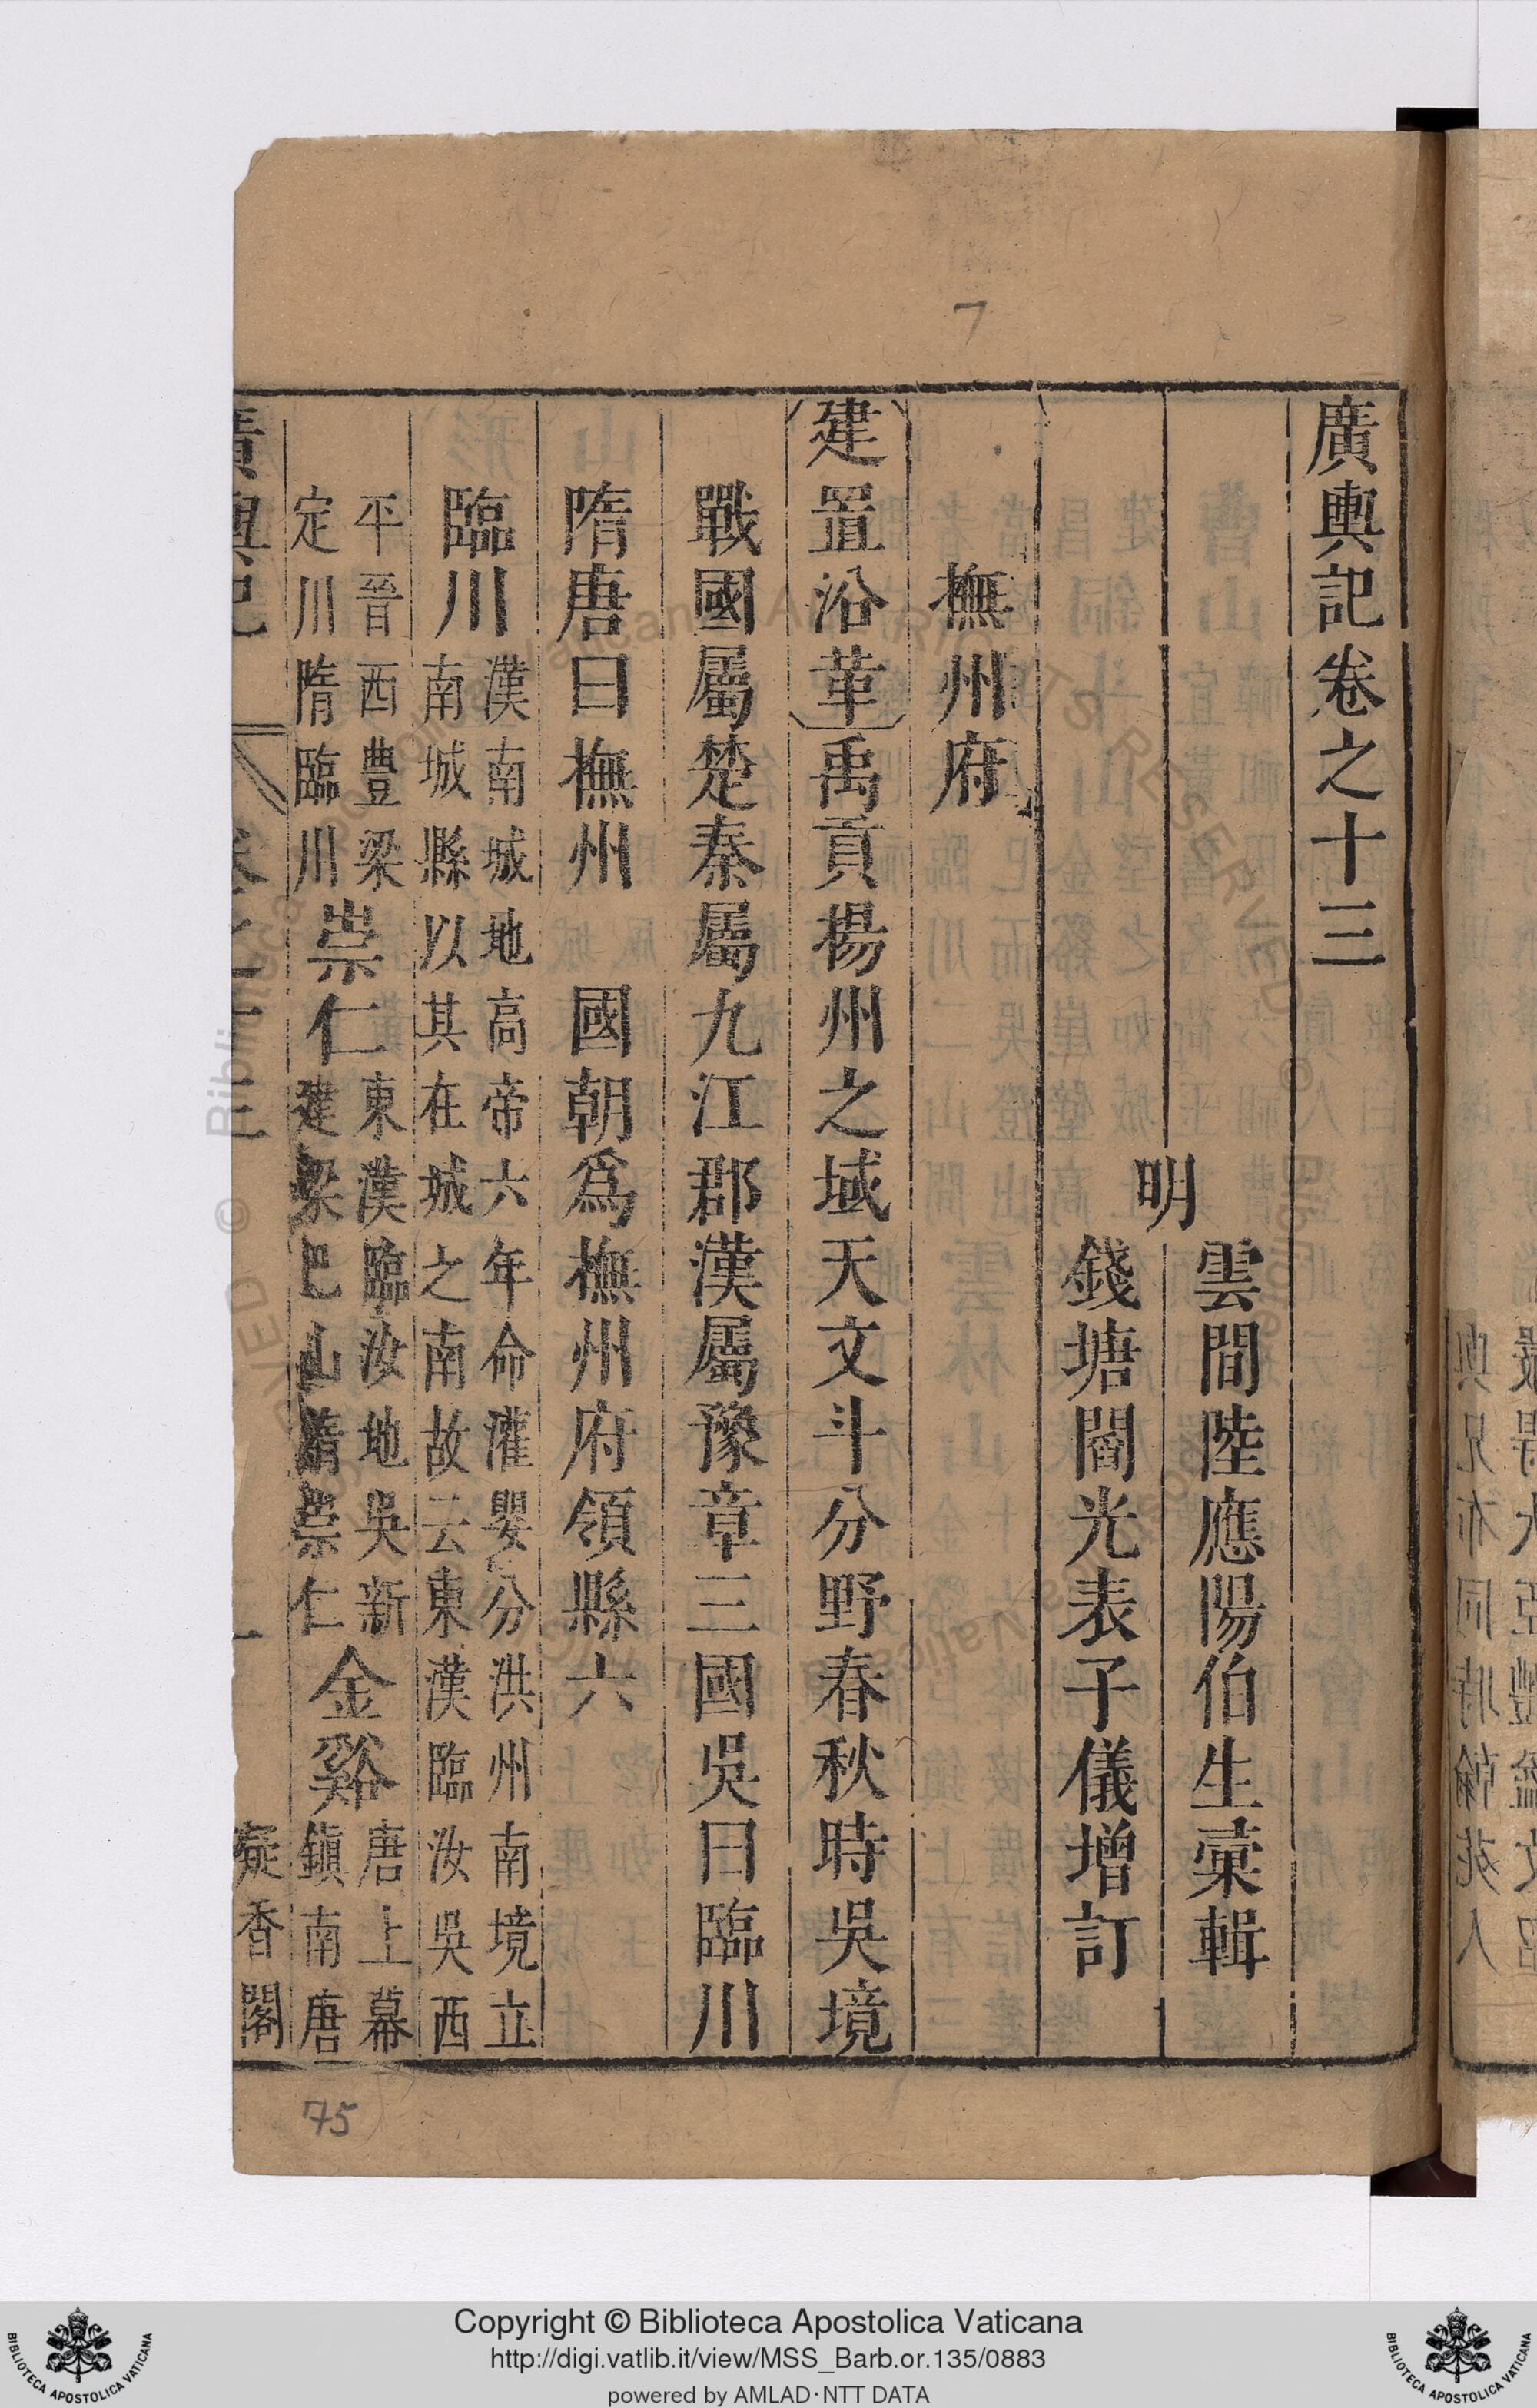 廣輿記卷之十三
明
雲間陸應陽伯生彚輯
錢塘閻光表子儀增訂
撫州府
建置沿革禹貢揚州之域天文斗分野春秋時吳境
戰國屬楚秦屬九江郡漢屬豫章三國吳曰臨川
隋唐曰撫州 國朝為撫州府領縣六
臨川漢南城地高帝六年命灌嬰分洪州南境立
南城縣以其在城之南故云東漢臨汝吳西
平晉西豐梁
定川隋臨川崇仁東漢臨汝地吳新
建梁巴山隋崇仁金谿唐上幕
鎭南唐
廣輿記 卷之十三 一 凝香閣
7
75
Copyright © Biblioteca Apostolica Vaticana
http://digi.vatlib.it/view/MSS_Barb.or.135/0883
powered by AMLAD·NTT DATA
BIBLIOTECA APOSTOLICA VATICANA
BIBLIOTECA APOSTOLICA VATICANA